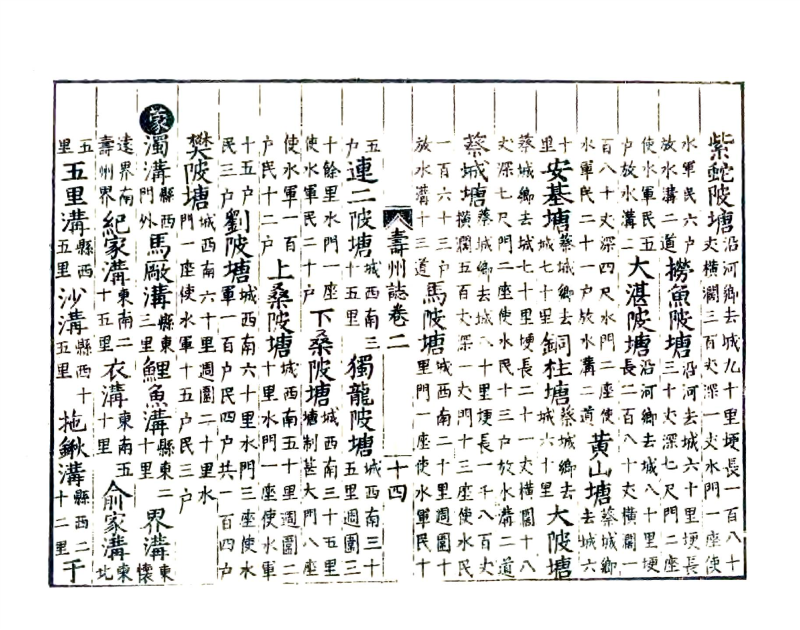 紫蛇陂塘沿河鄉去城九十里埂長一百八十丈橫濶三百丈深一丈水門一座使
水軍民六戶放水溝二道撈魚陂塘沿河鄉去城六十里埂長三十丈深七尺門二座
使水軍民五戶放水溝二大湛陂塘沿河鄉去城八十里埂長二百八十丈橫濶一
百八十丈深四尺水門二座使水軍民二十一戶放水溝二道黄山塘蔡城鄉去城六
十里安基塘蔡城鄉去城七十里銅柱塘蔡城鄉去城六十里大陂塘
蔡城鄉去城七十里埂長二十一丈橫闊十八丈深七尺門二座使水民十三戶放水溝二道
蔡城塘蔡城鄉去城八十里埂長一千八百丈橫濶五百丈深一丈門十三座使水民
一百六十三戶放水溝十三道馬陂塘城西南二十里週圍十里門一座使水軍民十
壽州誌卷二 十四
五戶連二陂塘城西南三十五里獨龍陂塘城西南三十五里週圍三
十餘里水門一座使水軍民二十戶下桑陂塘城西南三十五里塘制甚大門八座
使水軍一百戶民十二戶上桑陂塘城西南五十里週圍二十里水門一座使水軍
十五戶民三戶劉陂塘城西南六十里水門三座使水軍一百戶民四戶共一百四戶
樊陂塘城西南六十里週圍二十里水門一座使水軍十五戶民三戶
蒙濁溝縣西門外馬廠溝縣東三里鯉魚溝縣東二十里界溝東懷
遠界南壽州界紀家溝東南二十五里衣溝東南五十里俞家溝東北
五里五里溝縣西五里沙溝縣西十五里拖鍬溝縣西二十二里于